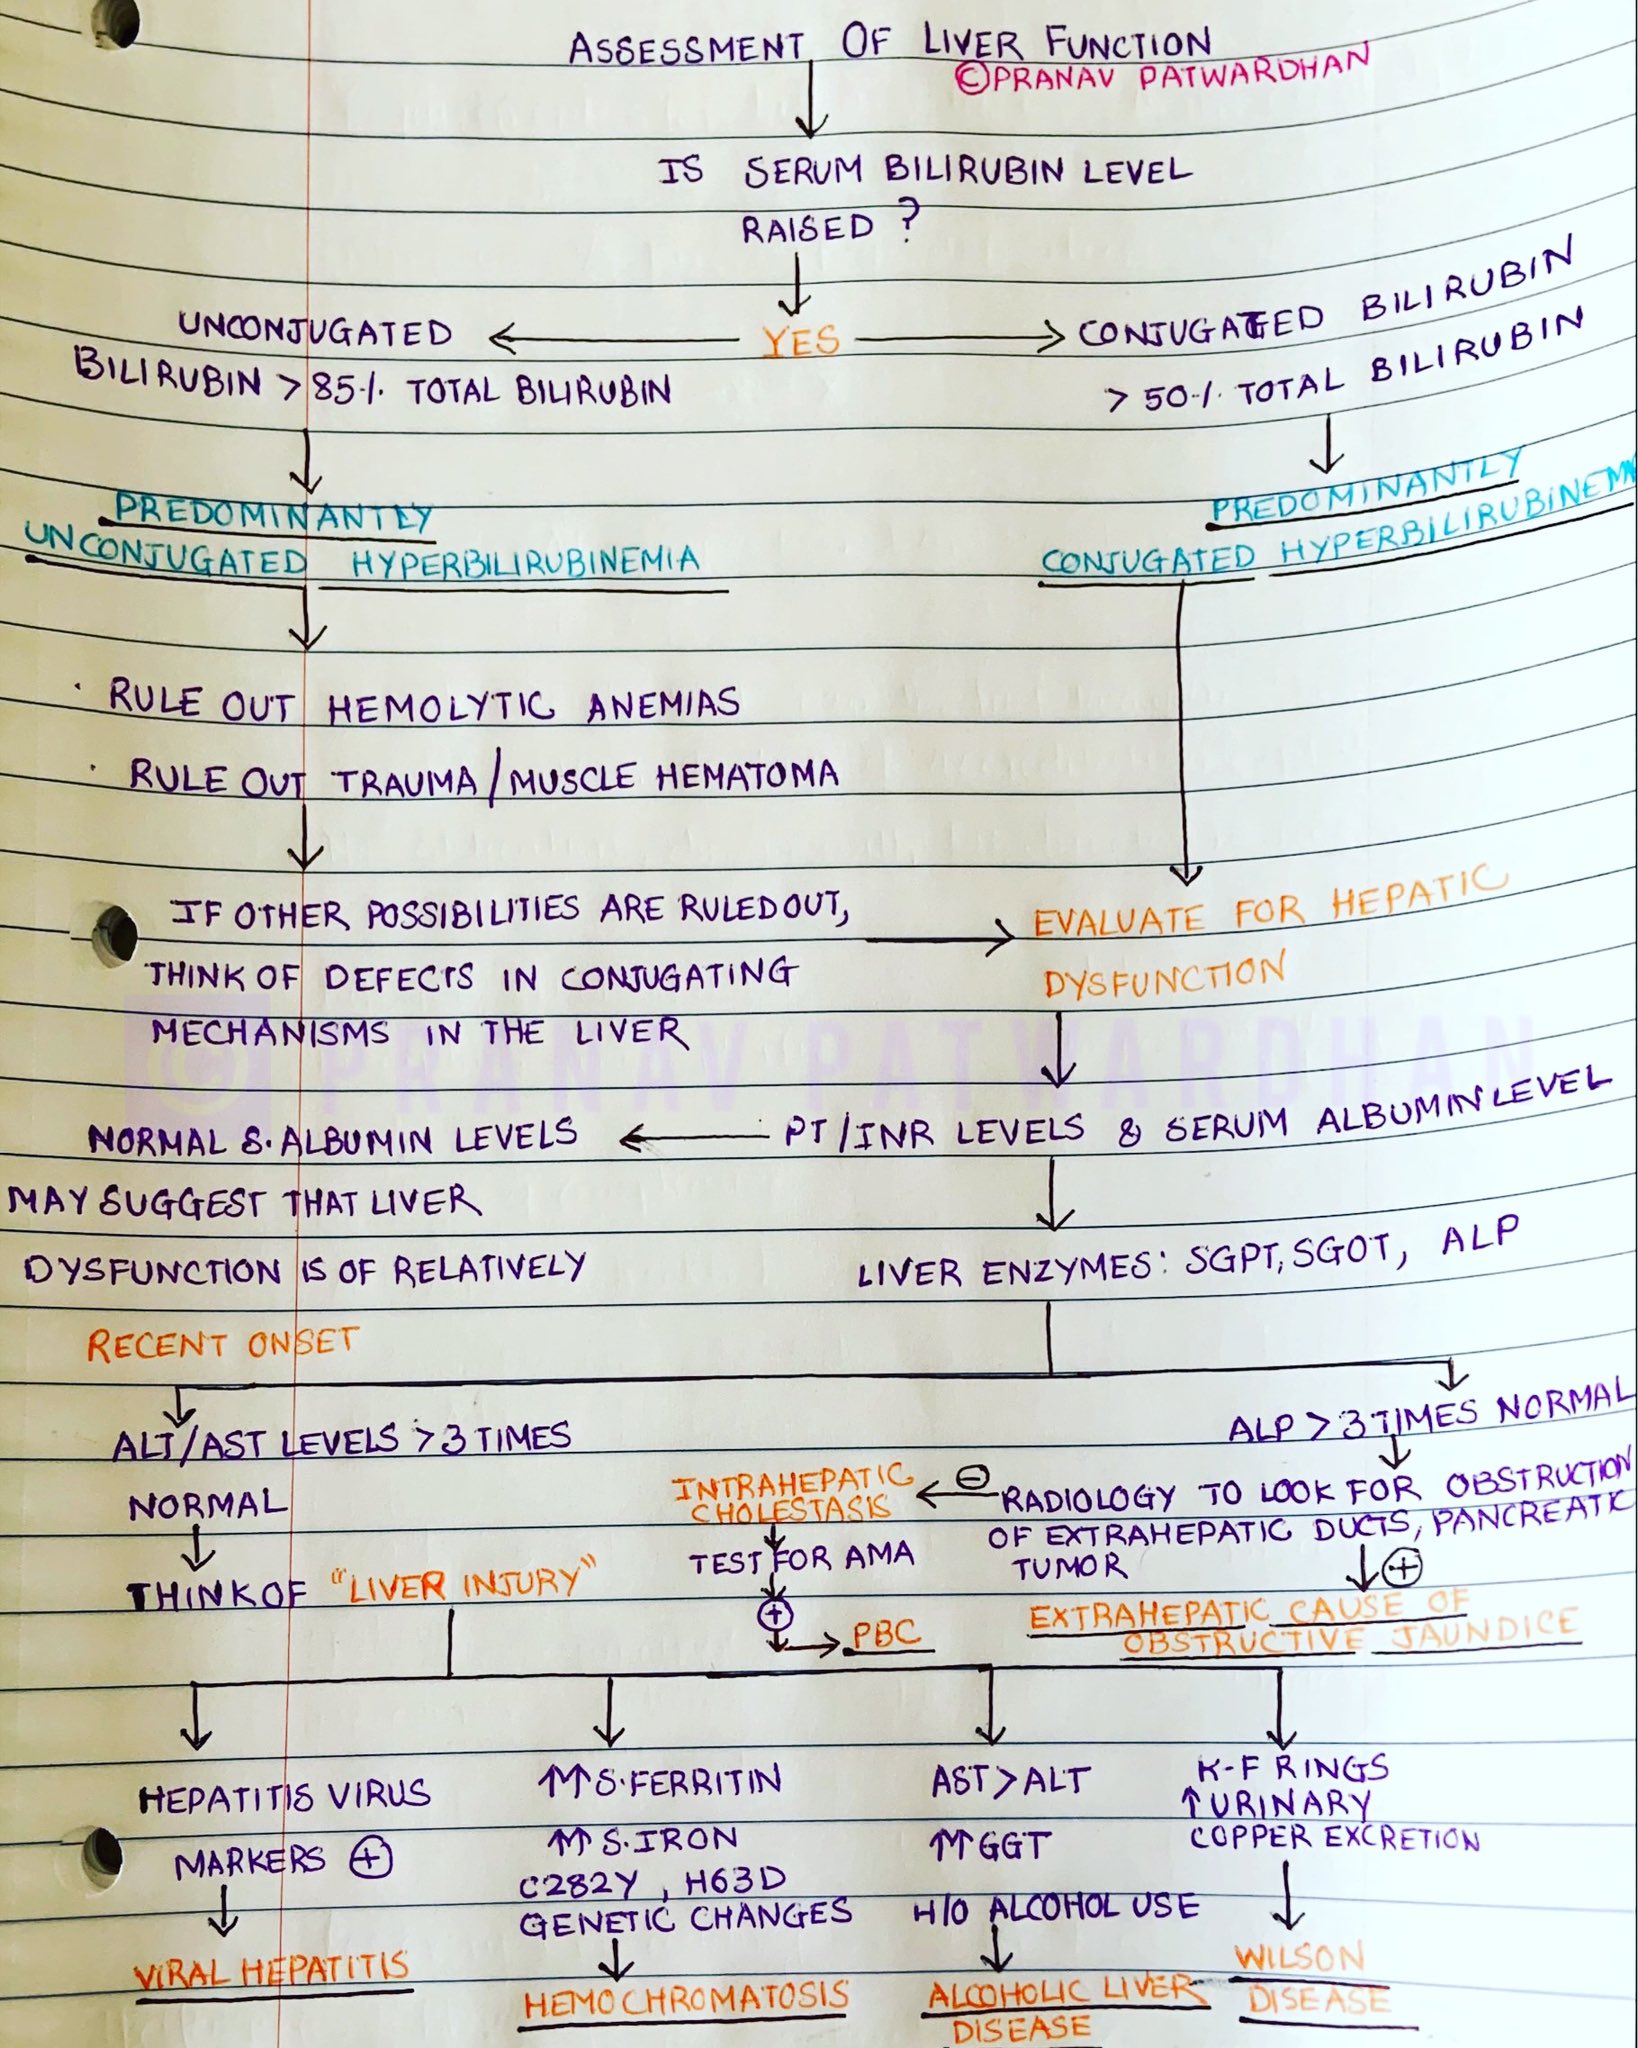 ASSESSMENT OF LIVER FUNCTION
©PRANAV PATWARDHAN
IS SERUM BILIRUBIN LEVEL
RAISED ?
YES
UNCONJUGATED
BILIRUBIN > 85% TOTAL BILIRUBIN
CONJUGATED BILIRUBIN
> 50% TOTAL BILIRUBIN
PREDOMINANTLY
UNCONJUGATED HYPERBILIRUBINEMIA
PREDOMINANTLY
CONJUGATED HYPERBILIRUBINEMI
· RULE OUT HEMOLYTIC ANEMIAS
· RULE OUT TRAUMA/MUSCLE HEMATOMA
IF OTHER POSSIBILITIES ARE RULED OUT,
THINK OF DEFECTS IN CONJUGATING
MECHANISMS IN THE LIVER
EVALUATE FOR HEPATIC
DYSFUNCTION
© PRANAV PATWARDHAN
PT/INR LEVELS & SERUM ALBUMIN LEVEL
NORMAL S. ALBUMIN LEVELS
MAY SUGGEST THAT LIVER
DYSFUNCTION IS OF RELATIVELY
RECENT ONSET
LIVER ENZYMES: SGPT, SGOT, ALP
ALT/AST LEVELS > 3 TIMES
NORMAL
THINK OF "LIVER INJURY"
ALP > 3 TIMES NORMAL
RADIOLOGY TO LOOK FOR OBSTRUCTION
OF EXTRAHEPATIC DUCTS, PANCREATIC
TUMOR
⊖
INTRAHEPATIC
CHOLESTASIS
TEST FOR AMA
⊕
PBC
⊕
EXTRAHEPATIC CAUSE OF
OBSTRUCTIVE JAUNDICE
HEPATITIS VIRUS
MARKERS ⊕
VIRAL HEPATITIS
↑↑ S. FERRITIN
↑↑ S. IRON
C282Y, H63D
GENETIC CHANGES
HEMOCHROMATOSIS
AST > ALT
↑↑ GGT
H/O ALCOHOL USE
ALCOHOLIC LIVER
DISEASE
K-F RINGS
↑ URINARY
COPPER EXCRETION
WILSON
DISEASE